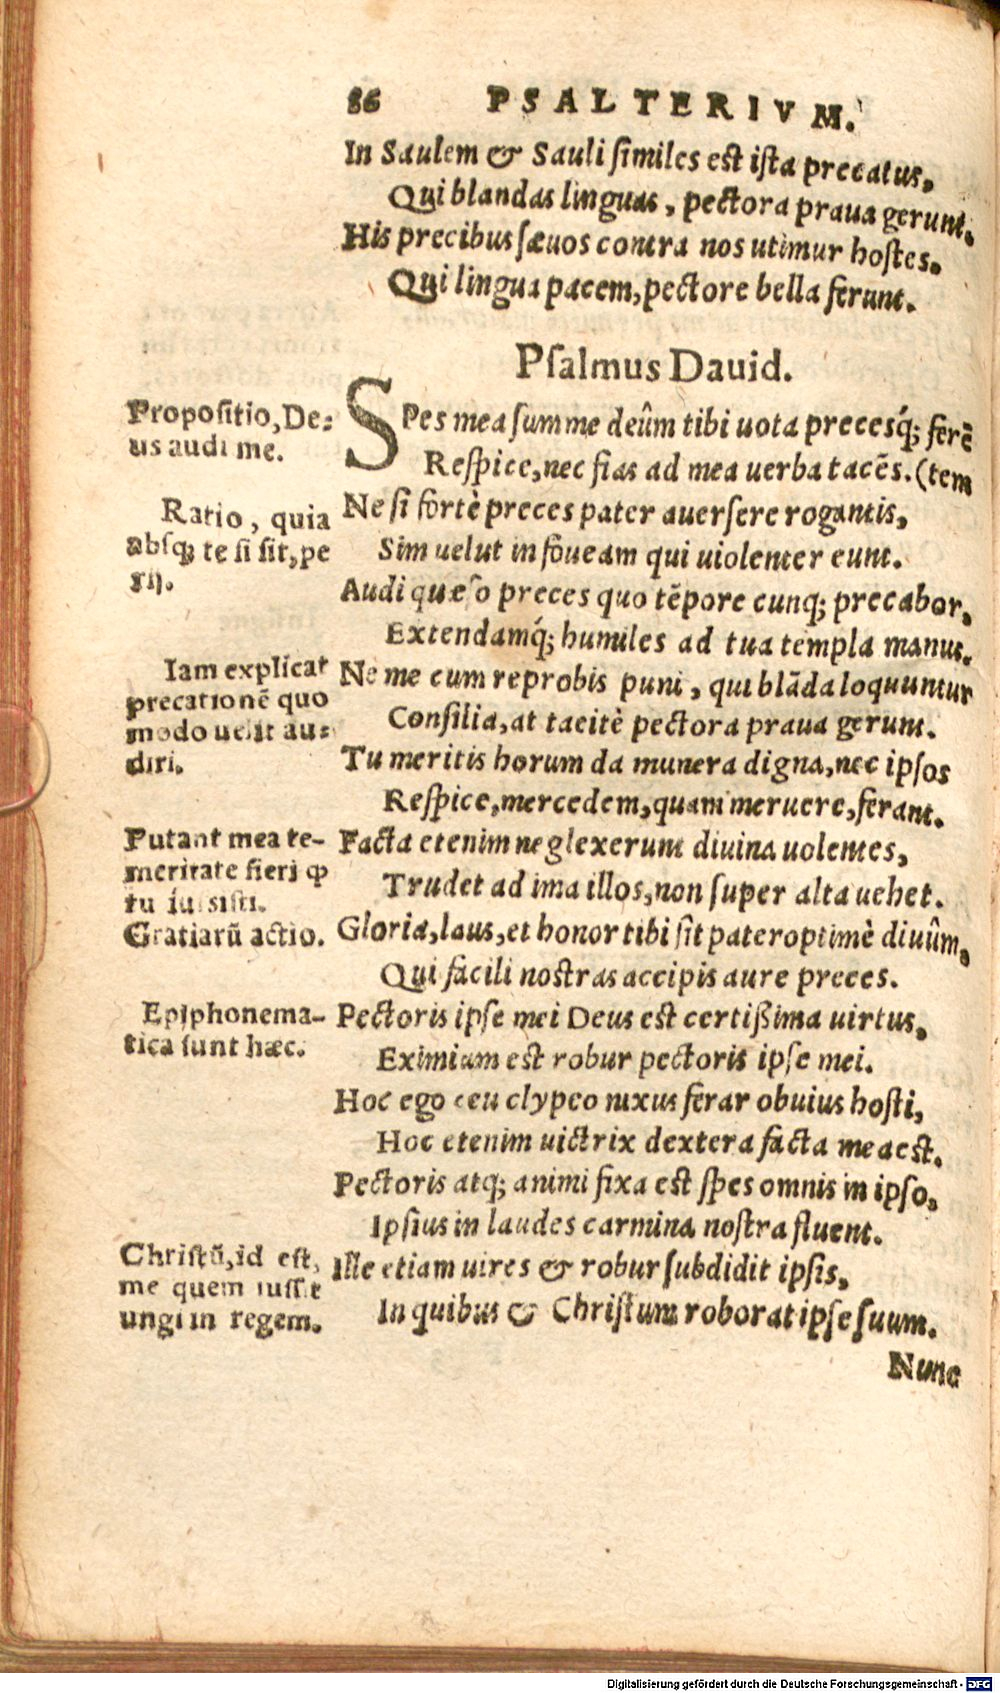 86 PSALTERIVM.
In Saulem & Sauli similes est ista precatus,
Qui blandas linguas, pectora praua gerunt.
His precibus sæuos contra nos utimur hostes.
Qui lingua pacem, pectore bella ferunt.
Psalmus Dauid.
Propositio, De=
us audi me.
SPes mea summe deûm tibi uota precesq́; ferē
Respice, nec fias ad mea uerba tacēs. (tem
Ratio, quia
absq; te si sit, pe
rij.
Ne si fortè preces pater auersere rogantis,
Sim uelut in foueam qui uiolenter eunt.
Audi quæso preces quo tēpore cunq; precabor,
Extendamq́; humiles ad tua templa manus.
Iam explicat
precationē quo
modo uelit au=
diri.
Ne me cum reprobis puni, qui blāda loquuntur
Consilia, at tacitè pectora praua gerunt.
Tu meritis horum da munera digna, nec ipsos
Respice, mercedem, quam meruere, ferant.
Putant mea te-
meritate fieri ꝙ
tu iussisti.
Facta etenim neglexerunt diuina uolentes,
Trudet ad ima illos, non super alta uehet.
Gratiarū actio.
Gloria, laus, et honor tibi sit pater optimè diuûm,
Qui facili nostras accipis aure preces.
Epiphonema-
tica sunt hæc.
Pectoris ipse mei Deus est certißima uirtus,
Eximium est robur pectoris ipse mei.
Hoc ego ceu clypeo nixus ferar obuius hosti,
Hoc etenim uictrix dextera facta mea est.
Pectoris atq; animi fixa est spes omnis in ipso,
Ipsius in laudes carmina nostra fluent.
Christū, id est,
me quem iussit
ungi in regem.
Ille etiam uires & robur subdidit ipsis,
In quibus & Christum roborat ipse suum.
Nunc
Digitalisierung gefördert durch die Deutsche Forschungsgemeinschaft - DFG